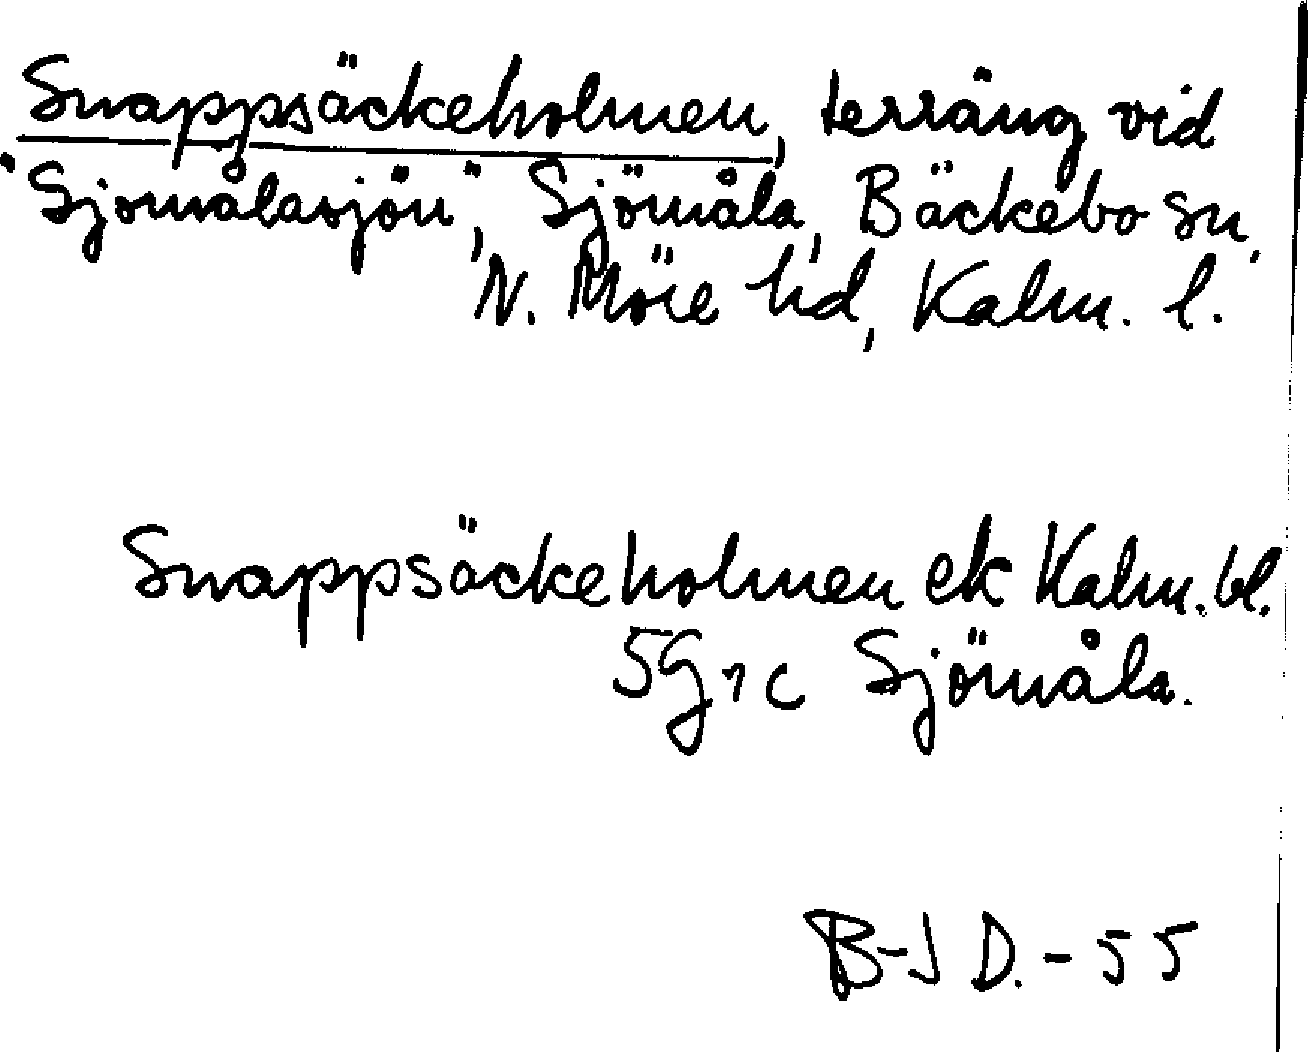 Snappsäckeholmen, terräng vid
"Sjömålasjön", Sjömåla, Bäckebo sn,
N. Möre hd, Kalm. l.
Snappsäckeholmen ek Kalm. bl.
5G1c Sjömåla.
B-J D. - 55